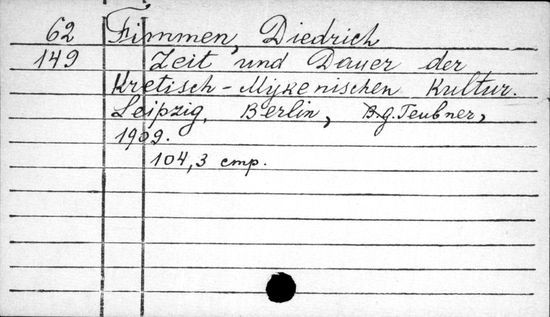 62 Fimmen, Diedrich
149 Zeit und Dauer der
Kretisch-Mykenischen Kultur.
Leipzig, Berlin, B.G. Teubner,
1909.
104,3 стр.